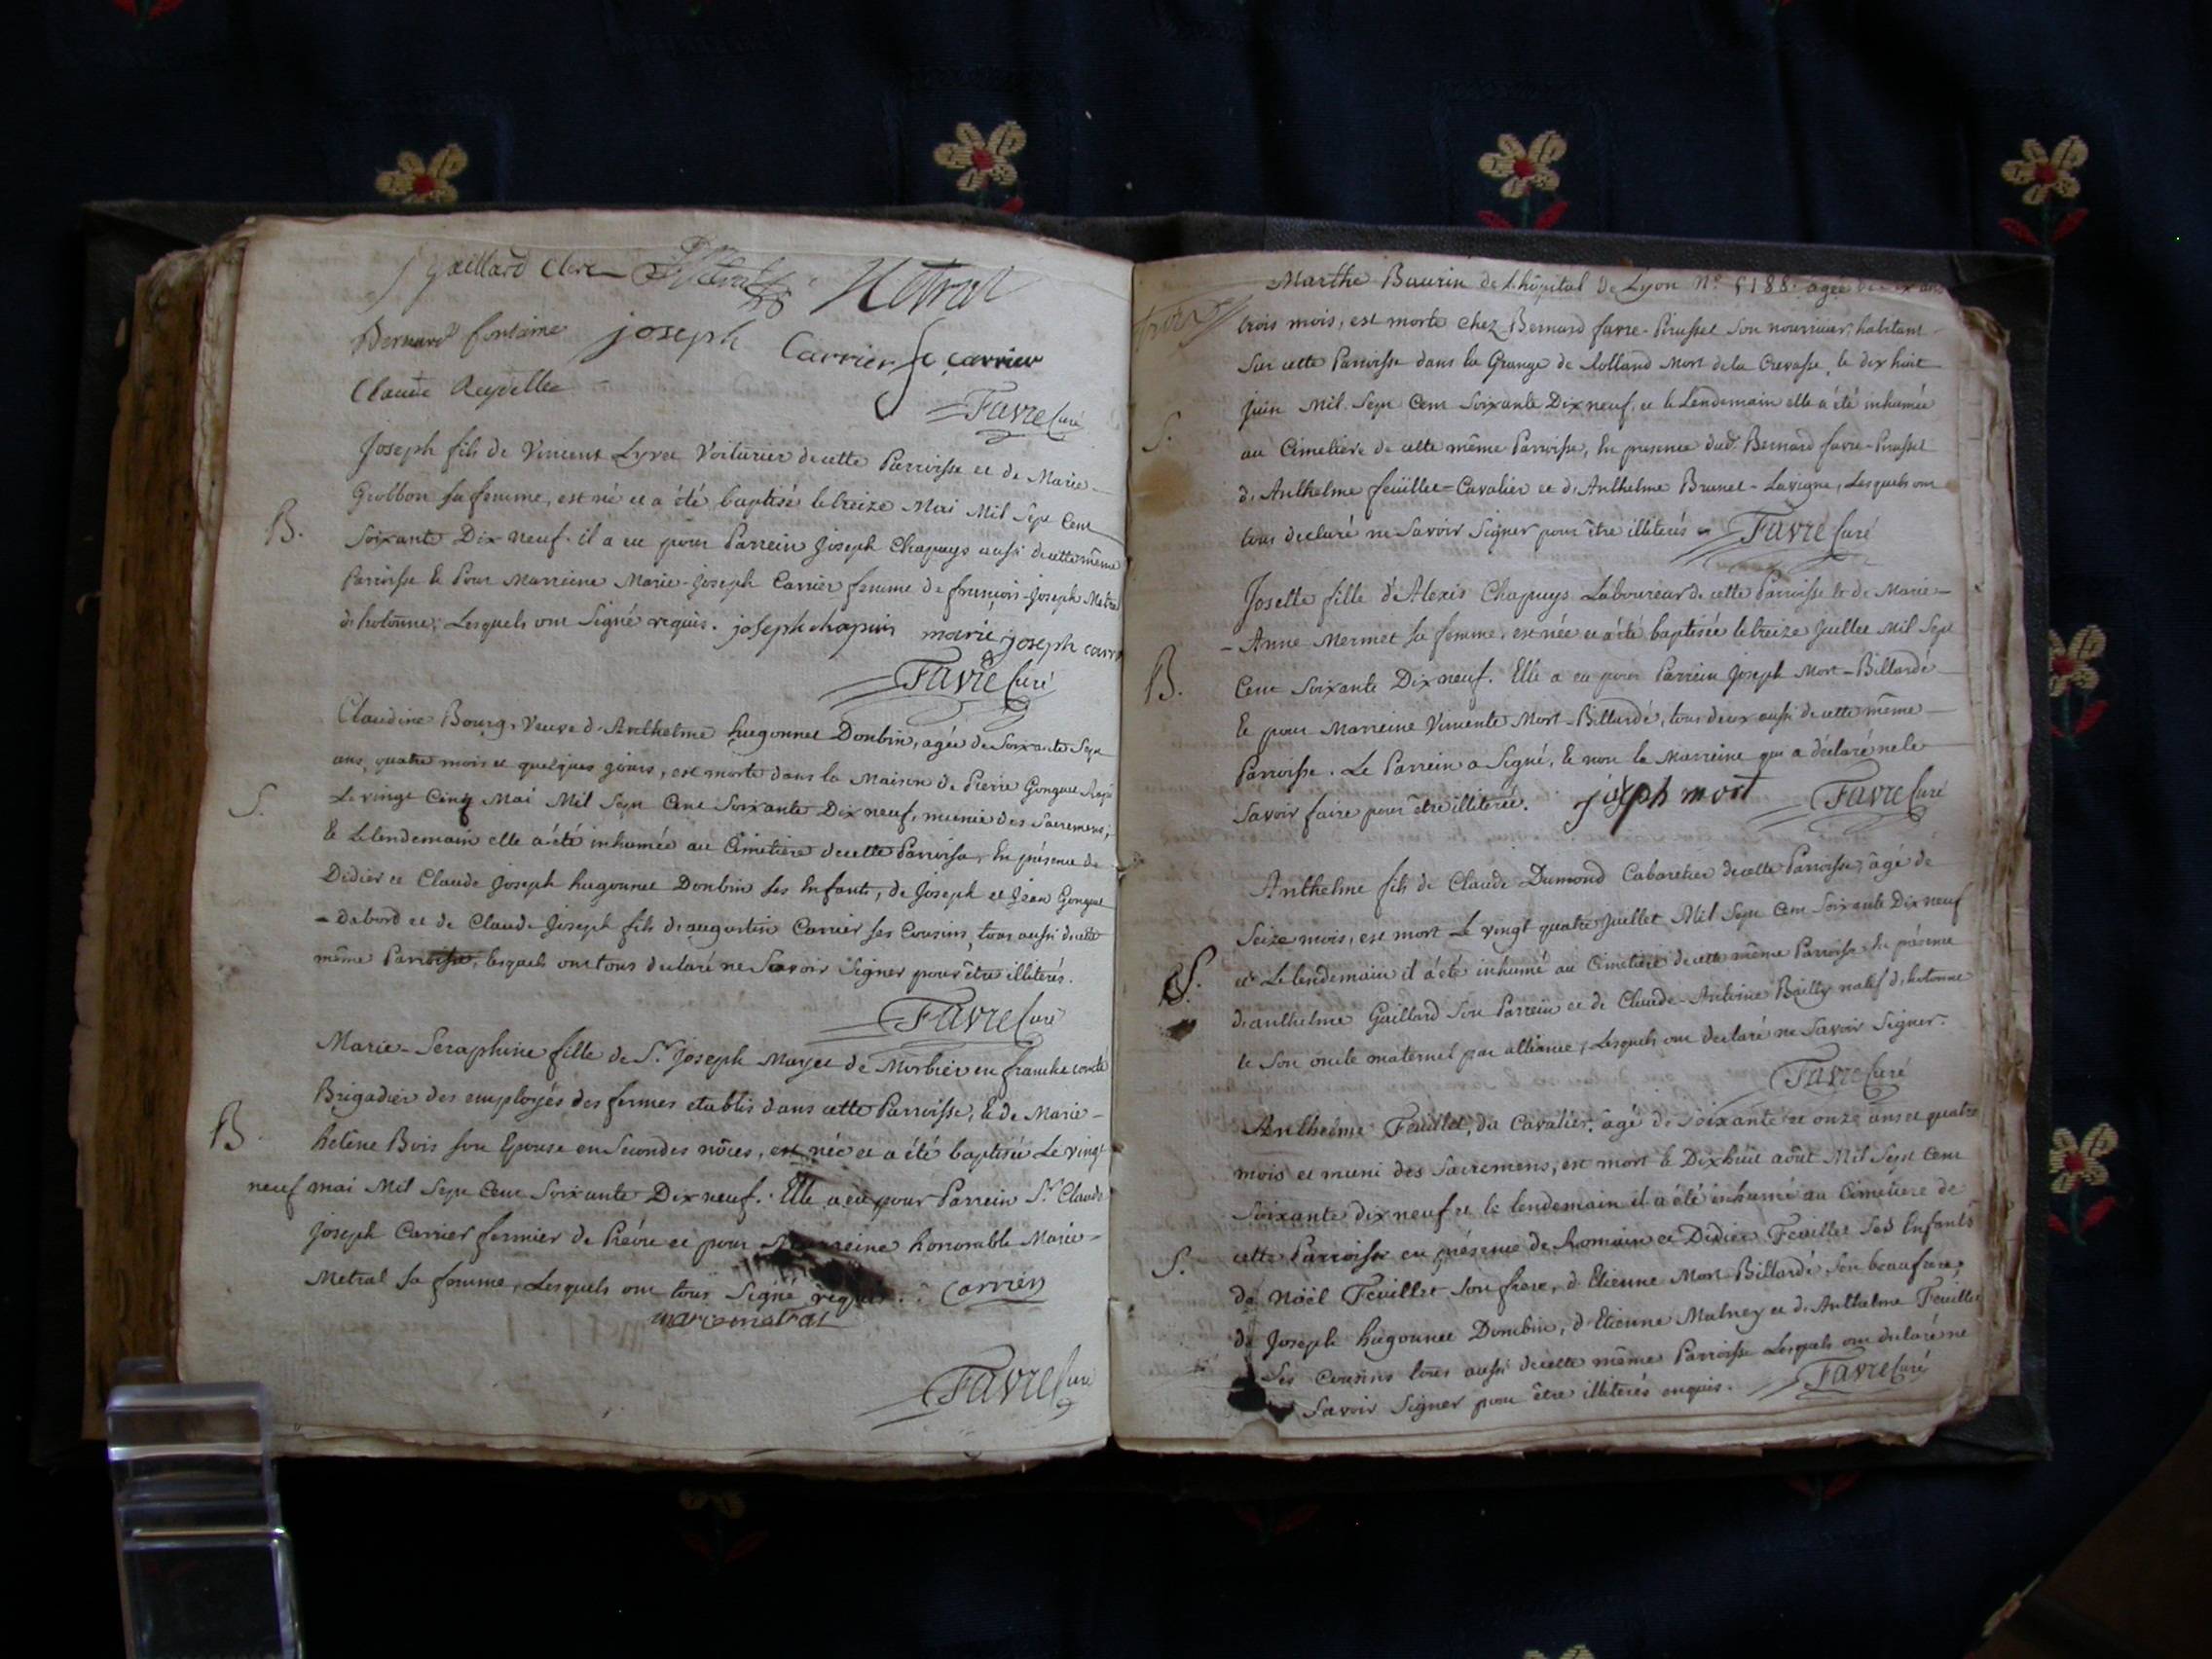 J Gaillard Clerc Metral
Bernard fontaine joseph Carrier f carrier
Claude Reydellee
Favre Curé
Joseph fils de Vincent Lyvet Voiturier de cette Parroisse et de Marie
Grobbon sa femme, est né et a été baptisé le treize Mai Mil Sept Cent
B. Soixante Dix neuf. il a eu pour Parrein Joseph Chapuys aussi de cette même
Parroisse & Pour Marreine Marie-Joseph Carrier femme de françois-Joseph Metral
d'hotonne; Lesquels ont Signé requis. joseph chapuis marie joseph carri
Favre Curé
Claudine Bourg, Veuve d'Anthelme hugonnet Donbin, agée de Soixante Sept
ans, quatre mois et quelques jours, est morte dans la Maison de Pierre Gonguet
S. Le vingt Cinq Mai Mil Sept Cent Soixante Dix neuf, munie des Sacremens;
& Le lendemain elle a été inhumée au Cimetiere de cette Parroisse, En présence de
Didier et Claude Joseph hugonnet Donbin ses Enfants, de Joseph et Jean Gonguet
- Dabord et de Claude-Joseph fils d'augustin Carrier ses Cousins, tous aussi de cette
même Parroisse, lesquels ont tous declaré ne Savoir Signer pour être illiterés.
Favre Curé
Marie-Seraphine fille de Sr. Joseph Mayet de Morbier en franche comté
Brigadier des employés des fermes etablis dans cette Parroisse, & de Marie-
B helêne Bois son Epouse en Secondes nôces, est née et a été baptisée Le vingt
neuf mai Mil Sept Cent Soixante Dix neuf. Elle a eu pour Parrein Sr. Claude
Joseph Carrier fermier de Préoire et pour Marreine honnorable Marie-
Metral sa femme, Lesquels ont tous Signé requis. Carrier
marie metral
Favre Curé
Marthe Baurin de l'hôpital de Lyon No. 5188. agée de
trois mois, est morte chez Bernard favre-Prusset Son nourricier, habitant
Sur cette Parroisse dans la Grange de Rolland Mort de la Crevasse, le dix huit
Juin Mil Sept Cent Soixante Dix neuf, et le Lendemain elle a été inhumée
S. au Cimetiere de cette même Parroisse, En presence dud. Bernard favre-Prusset
d'Anthelme feüillet-Cavalier et d'Anthelme Brunet-Lavigne, Lesquels ont
tous declaré ne Savoir Signer pour être illiterés Favre Curé
Josette fille d'Alexis Chapuys Laboureur de cette Parroisse & de Marie-
- Anne Mermet sa femme, est née et a été baptisée le treize Juillet Mil Sept
B. Cent Soixante Dix neuf. Elle a eu pour Parrein Joseph Mort-Billardé
& pour Marreine Vincente Mort-Billardé, tous deux aussi de cette même
Parroisse. Le Parrein a Signé, & non la Marreine qui a déclaré ne le
Savoir faire pour être illiterée. joseph mort Favre Curé
Anthelme fils de Claude Dumond Cabaretier de cette Parroisse, âgé de
Seize mois, est mort Le vingt quatre Juillet Mil Sept Cent Soixante Dix neuf
S. et Le lendemain il a été inhumé au Cimetiere de cette même Parroisse En présence
d'anthelme Gaillard Son Parrein et de Claude-Antoine Bailly natif d'hotonne
& Son oncle maternel par alliance, Lesquels ont declaré ne Savoir Signer.
Favre Curé
Anthelme Feuillet, dit Cavalier, agé de Soixante et onze ans et quatre
mois et muni des Sacremens, est mort le Dixhuit août Mil Sept Cent
Soixante dix neuf et le lendemain il a été inhumé au Cimetiere de
S. cette Parroisse en présence de Romain et Didier Feuillet Ses Enfants
de Noël Feuillet Son frere, d'Etienne Mort Billardé Son beaufrere,
de Joseph hugonnet Dombin, d'Etienne Malney et d'Anthelme Feuillet
Ses Cousins tous aussi de cette même Parroisse Lesquels ont declaré ne
Savoir Signer pour être illiterés enquis. Favre Curé